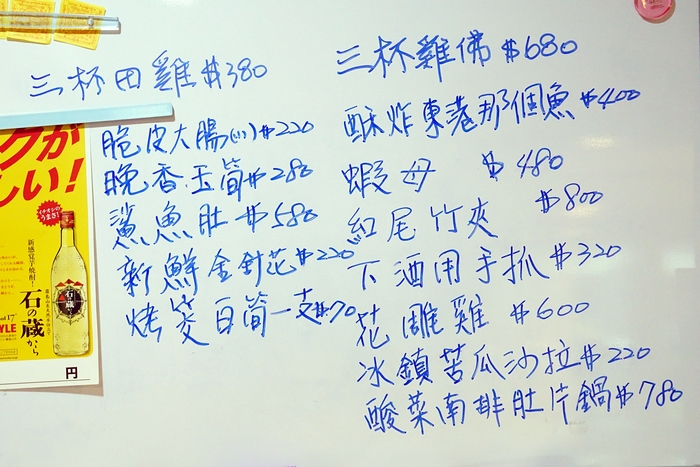 三杯田雞 $380
脆皮大腸(小) $220
晚香玉筍 $280
鯊魚肚 $580
新鮮金針花 $220
烤茭白筍一支 $70
三杯雞佛 $680
酥炸東港那個魚 $400
蝦母 $480
紅尾竹夾 $800
下酒用手抓 $320
花雕雞 $600
冰鎮苦瓜沙拉 $220
酸菜南排肚片鍋 $780
クが
しい!
イチオシの
うまさ!
新感覚芋焼酎!
石の蔵から
STYLE
円